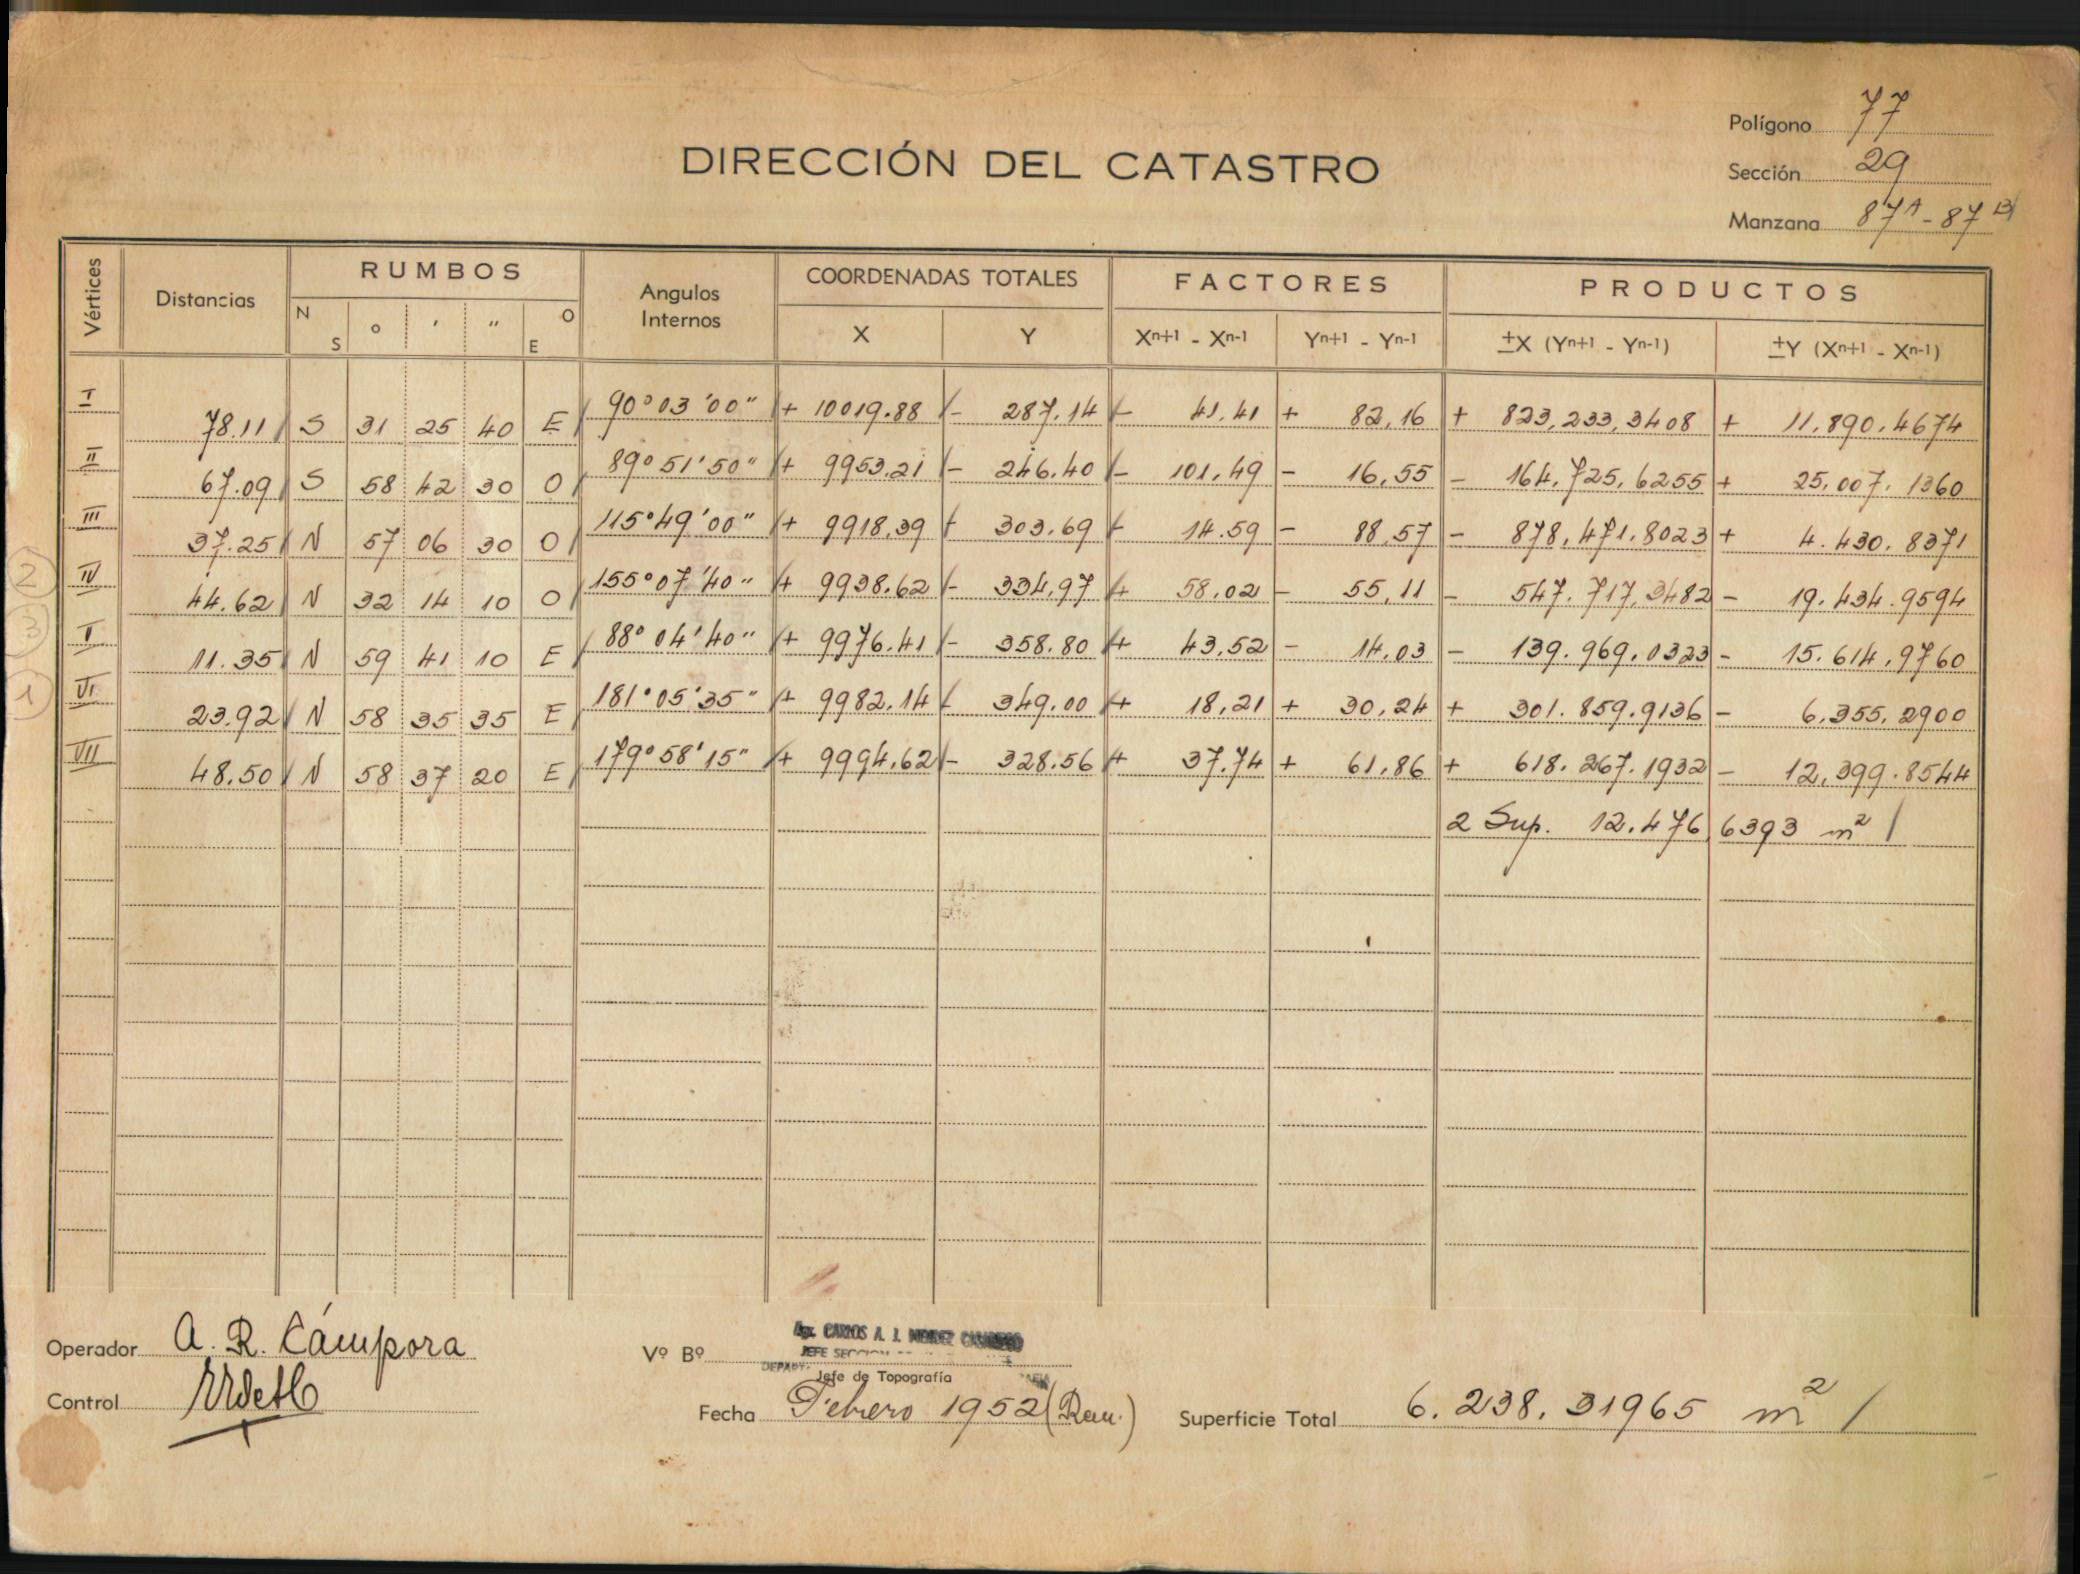 Polígono 77
DIRECCIÓN DEL CATASTRO
Sección 29
Manzana 87A - 87B
Vértices Distancias RUMBOS Angulos Internos COORDENADAS TOTALES FACTORES PRODUCTOS
N S ° ' " O E X Y Xn+1 - Xn-1 Yn+1 - Yn-1 ±X (Yn+1 - Yn-1) ±Y (Xn+1 - Xn-1)
I 78.11 S 31 25 40 E 90°03'00" + 10019.88 - 287.14 - 41.41 + 82,16 + 823,233,3408 + 11.890.4674
II 67.09 S 58 42 30 O 89°51'50" + 9953.21 - 246.40 - 101,49 - 16,55 - 164.725,6255 + 25.007.1360
III 37.25 N 57 06 30 O 115°49'00" + 9918,39 - 303.69 - 14.59 - 88,57 - 878,471.8023 + 4.430.8371
2 IV 44.62 N 32 14 10 O 155°07'40" + 9938.62 - 334,97 + 58,02 - 55,11 - 547.717,3482 - 19.434.9594
3 V 11.35 N 59 41 10 E 88°04'40" + 9976.41 - 358.80 + 43,52 - 14,03 - 139.969,0323 - 15.614,9760
1 VI 23.92 N 58 35 35 E 181°05'35" + 9982,14 - 349.00 + 18,21 + 30,24 + 301.859.9136 - 6,355,2900
VII 48.50 N 58 37 20 E 179°58'15" + 9994,62 - 328.56 + 37.74 + 61,86 + 618.267.1932 - 12,399.8544
2 Sup. 12.476,6393 m2
Operador A. R. Cámpora
Vº Bº CARLOS A. J. MENDEZ
JEFE SECCION
Jefe de Topografía
Control
Fecha Febrero 1952 (Ren.)
Superficie Total 6.238.31965 m2